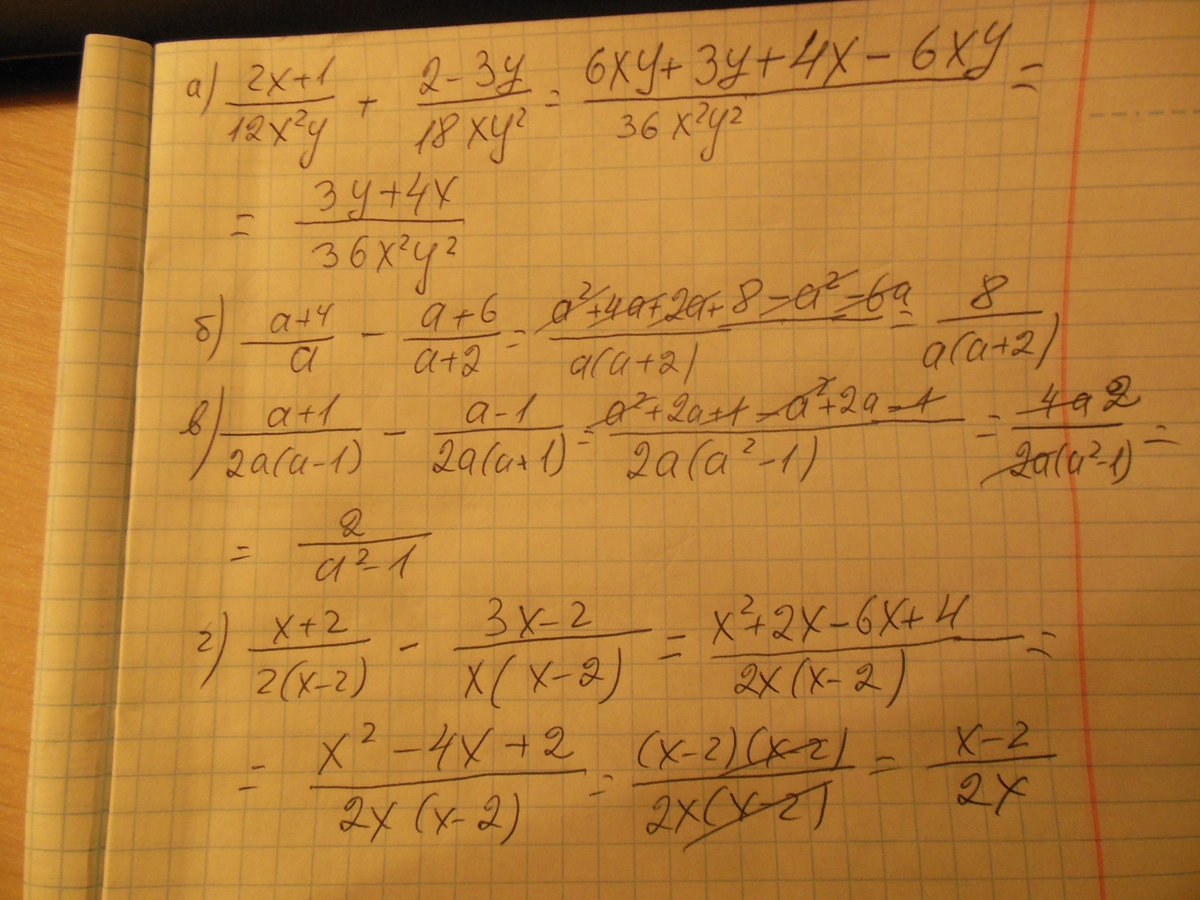 а) (2x+1)/(12x²y) + (2-3y)/(18xy²) = (6xy+3y+4x-6xy)/(36x²y²) =
= (3y+4x)/(36x²y²)
б) (a+4)/a - (a+6)/(a+2) = (a²+4a+2a+8-a²-6a)/(a(a+2)) = 8/(a(a+2))
в) (a+1)/(2a(a-1)) - (a-1)/(2a(a+1)) = (a²+2a+1-a²+2a-1)/(2a(a²-1)) = (4a 2)/(2a(a²-1)) =
= 2/(a²-1)
г) (x+2)/(2(x-2)) - (3x-2)/(x(x-2)) = (x²+2x-6x+4)/(2x(x-2)) =
= (x²-4x+2)/(2x(x-2)) = ((x-2)(x-2))/(2x(x-2)) = (x-2)/(2x)